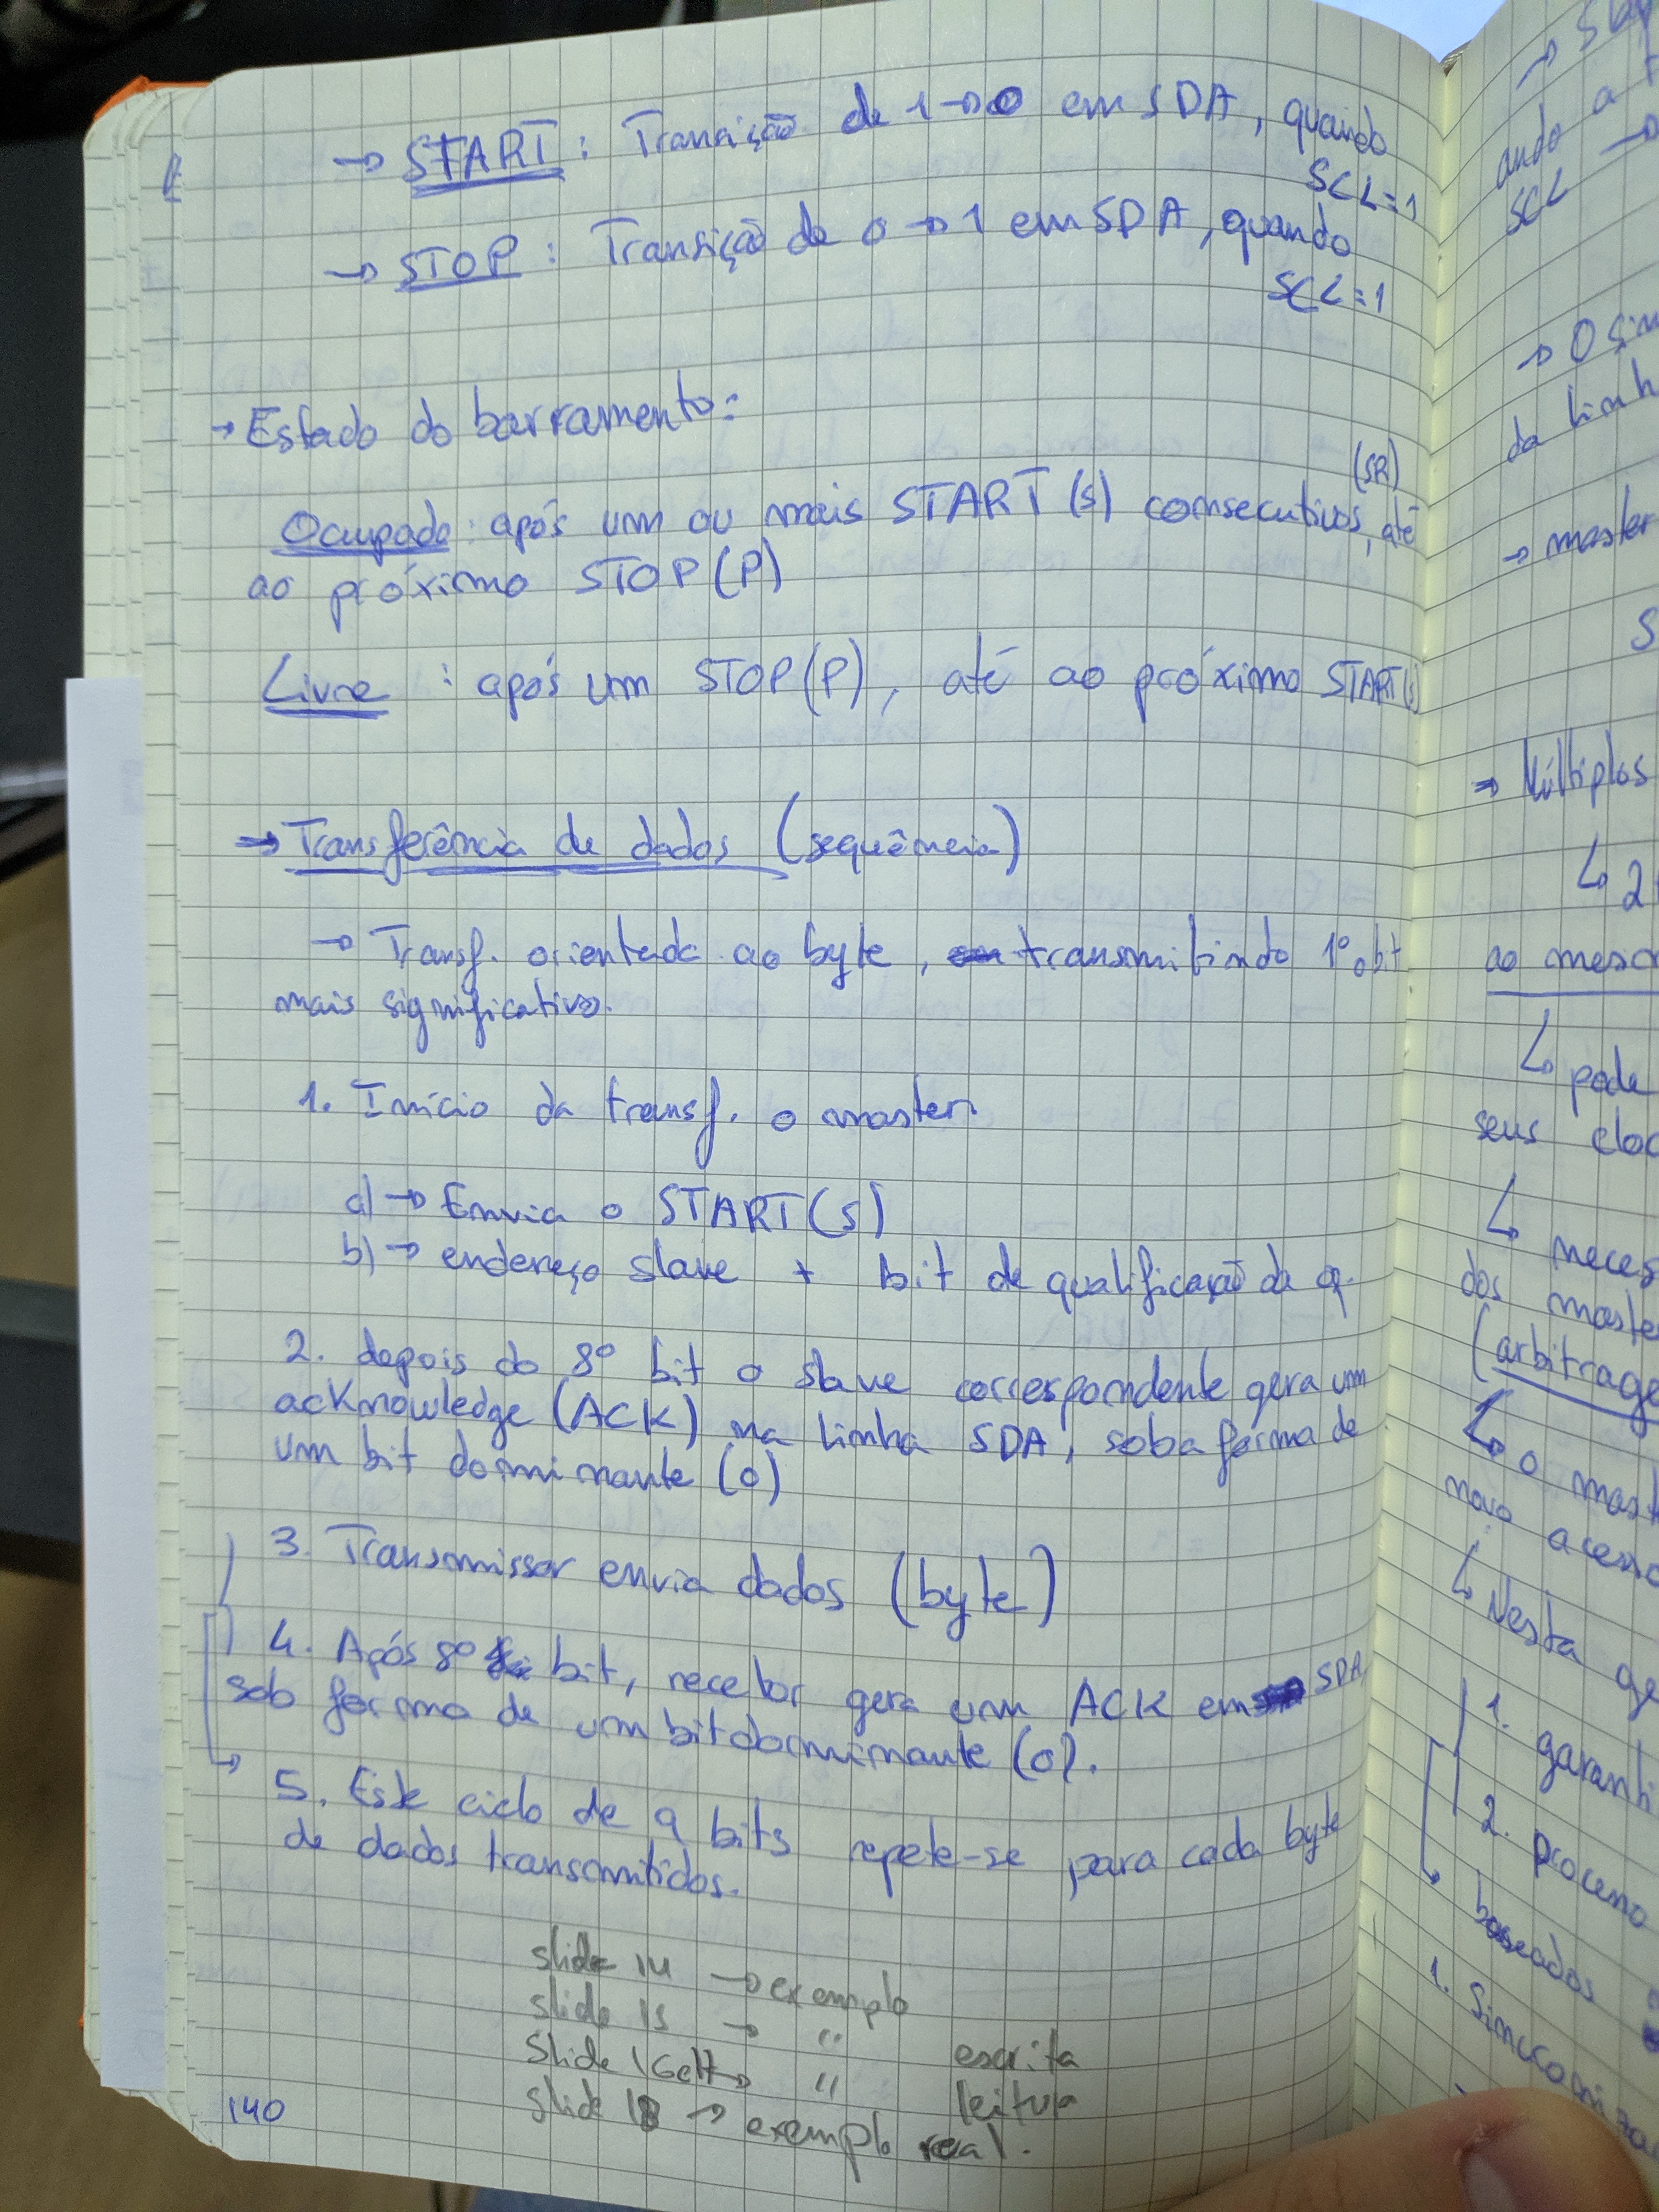 → START : Transição de 1→0 em SDA, quando
SCL=1
→ STOP : Transição de 0→1 em SDA, quando
SCL=1
→ Estado do barramento:
(SR)
Ocupado: após um ou mais START(S) consecutivos, até
ao próximo STOP(P)
Livre : após um STOP(P), até ao próximo START(S)
⇒ Transferência de dados (sequência)
→ Transf. orientada ao byte, transmitindo 1º o bit
mais significativo.
1. Início da transf. o master:
a) → Envia o START(S)
b) → endereço slave + bit de qualificação da op.
2. depois do 8º bit o slave correspondente gera um
acknowledge (ACK) na linha SDA, sob a forma de
um bit dominante (0)
3. Transmissor envia dados (byte)
4. Após 8º bit, recetor gera um ACK em SDA,
sob forma de um bit dominante (0).
5. Este ciclo de 9 bits repete-se para cada byte
de dados transmitidos.
slide 14 → exemplo
slide 15 → " escrita
Slide 16e17→ " leitura
slide 18 → exemplo real.
140
→
ando a
SCL →
→ O
da linh
→ master
S
⇒ Múltiplos
↳ 2
ao mesm
↳ pode
seus cloc
↳ neces
dos maste
(arbitrage
↳ o mast
novo acesso
↳ Nesta ge
1. garanti
2. processo
baseados
1. Sincroniza